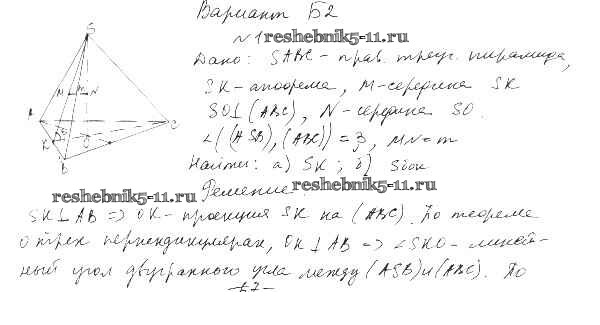 Вариант Б2
№1
reshebnik5-11.ru
Дано: SABC - прав. треуг. пирамида,
SK - апофема, M - середина SK
SO⊥(ABC), N - середина SO.
∠((ASB),(ABC)) = β, MN = m
Найти: а) SK; б) Sбок
reshebnik5-11.ru
Решение
reshebnik5-11.ru
SK⊥AB => OK - проекция SK на (ABC). По теореме
о трех перпендикулярах, OK⊥AB => ∠SKO - линей-
ный угол двугранного угла между (ASB) и (ABC). По
S
M
N
A
K
O
C
B